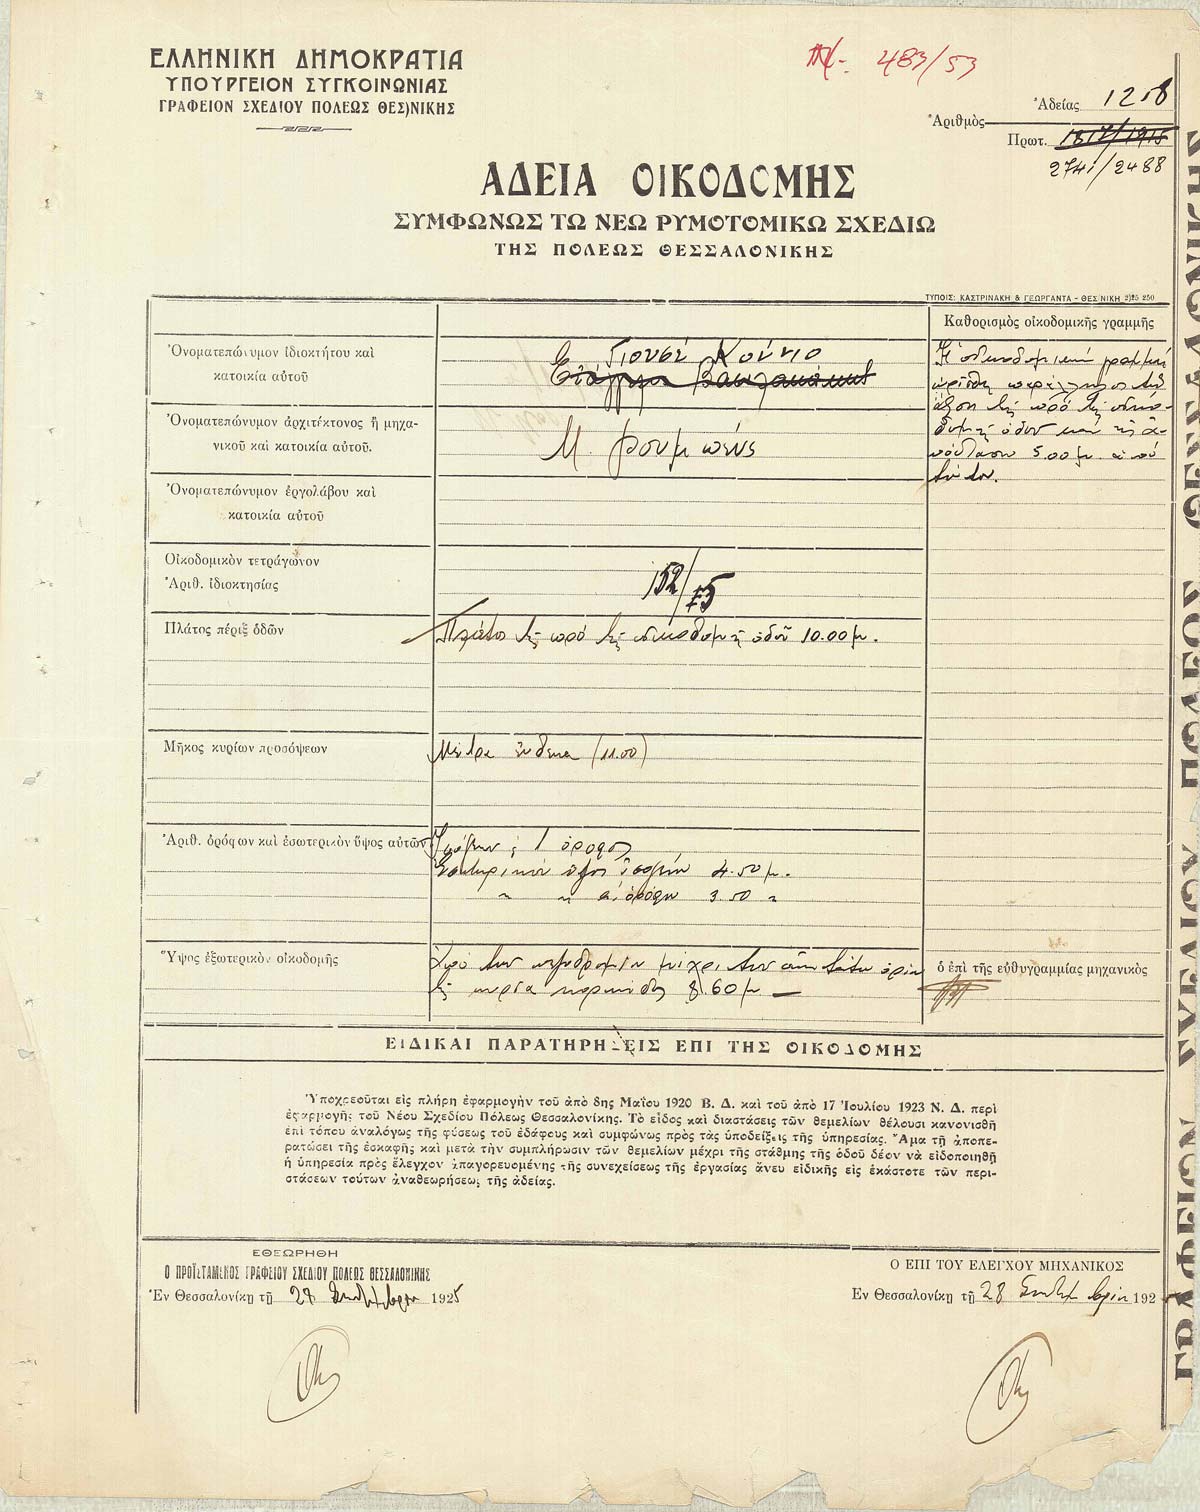 ΕΛΛΗΝΙΚΗ ΔΗΜΟΚΡΑΤΙΑ
ΥΠΟΥΡΓΕΙΟΝ ΣΥΓΚΟΙΝΩΝΙΑΣ
ΓΡΑΦΕΙΟΝ ΣΧΕΔΙΟΥ ΠΟΛΕΩΣ ΘΕΣ)ΝΙΚΗΣ
483/53
Ἀδείας 1258
Ἀριθμὸς
Πρωτ. 1817/1915
2741/2488
ΑΔΕΙΑ ΟΙΚΟΔΟΜΗΣ
ΣΥΜΦΩΝΩΣ ΤΩ ΝΕΩ ΡΥΜΟΤΟΜΙΚΩ ΣΧΕΔΙΩ
ΤΗΣ ΠΟΛΕΩΣ ΘΕΣΣΑΛΟΝΙΚΗΣ
ΤΥΠΟΙΣ: ΚΑΣΤΡΙΝΑΚΗ & ΓΕΩΡΓΑΝΤΑ - ΘΕΣ)ΝΙΚΗ 2)25 250
Καθορισμὸς οἰκοδομικῆς γραμμῆς
Ὀνοματεπώνυμον ἰδιοκτήτου καὶ
κατοικία αὐτοῦ
Γιουσὲ Κούνιο
Ἡ οἰκοδομικὴ γραμμὴ
ὡρίσθη παράλληλος τῷ
ἄξονι τῆς πρὸ τῆς οἰκο-
δομῆς ὁδοῦ καὶ εἰς ἀ-
πόστασιν 5.00 μ. ἀπὸ
τούτου.
Ὀνοματεπώνυμον ἀρχιτέκτονος ἢ μηχα-
νικοῦ καὶ κατοικία αὐτοῦ.
Μ. Ρουμπένς
Ὀνοματεπώνυμον ἐργολάβου καὶ
κατοικία αὐτοῦ
Οἰκοδομικὸν τετράγωνον
Ἀριθ. ἰδιοκτησίας
152/75
Πλάτος πέριξ ὁδῶν
Πλάτος τῆς πρὸ τῆς οἰκοδομῆς ὁδοῦ 10.00 μ.
Μῆκος κυρίων προσόψεων
Μέτρα ἕνδεκα (11.00)
Ἀριθ. ὀρόφων καὶ ἐσωτερικὸν ὕψος αὐτῶν
Ἰσόγειον & 1 ὄροφος
Ἐσωτερικὸν ὕψος ἰσογείου 4.50 μ.
" " α' ὀρόφου 3.50 "
Ὕψος ἐξωτερικὸν οἰκοδομῆς
Ἀπὸ τοῦ πεζοδρομίου μέχρι τοῦ ἀνωτάτου ὁρίου
τῆς κυρίας κορωνίδος 8.60 μ.
ὁ ἐπὶ τῆς εὐθυγραμμίας μηχανικὸς
ΕΙΔΙΚΑΙ ΠΑΡΑΤΗΡΗΣΕΙΣ ΕΠΙ ΤΗΣ ΟΙΚΟΔΟΜΗΣ
Ὑποχρεοῦται εἰς πλήρη ἐφαρμογὴν τοῦ ἀπὸ 8ης Μαΐου 1920 Β. Δ. καὶ τοῦ ἀπὸ 17 Ἰουλίου 1923 Ν. Δ. περὶ
ἐφαρμογῆς τοῦ Νέου Σχεδίου Πόλεως Θεσσαλονίκης. Τὸ εἶδος καὶ διαστάσεις τῶν θεμελίων θέλουσι κανονισθῆ
ἐπὶ τόπου ἀναλόγως τῆς φύσεως τοῦ ἐδάφους καὶ συμφώνως πρὸς τὰς ὑποδείξεις τῆς ὑπηρεσίας. Ἅμα τῇ ἀποπε-
ρατώσει τῆς ἐσκαφῆς καὶ μετὰ τὴν συμπλήρωσιν τῶν θεμελίων μέχρι τῆς στάθμης τῆς ὁδοῦ δέον νὰ εἰδοποιηθῇ
ἡ ὑπηρεσία πρὸς ἔλεγχον ἀπαγορευομένης τῆς συνεχίσεως τῆς ἐργασίας ἄνευ εἰδικῆς εἰς ἑκάστοτε τῶν περι-
στάσεων τούτων ἀναθεωρήσεως τῆς ἀδείας.
ΕΘΕΩΡΗΘΗ
Ο ΠΡΟΪΣΤΑΜΕΝΟΣ ΓΡΑΦΕΙΟΥ ΣΧΕΔΙΟΥ ΠΟΛΕΩΣ ΘΕΣΣΑΛΟΝΙΚΗΣ
Ἐν Θεσσαλονίκῃ τῇ 28 Σεπτεμβρίου 1925
Ο ΕΠΙ ΤΟΥ ΕΛΕΓΧΟΥ ΜΗΧΑΝΙΚΟΣ
Ἐν Θεσσαλονίκῃ τῇ 28 Σεπτεμβρίου 192